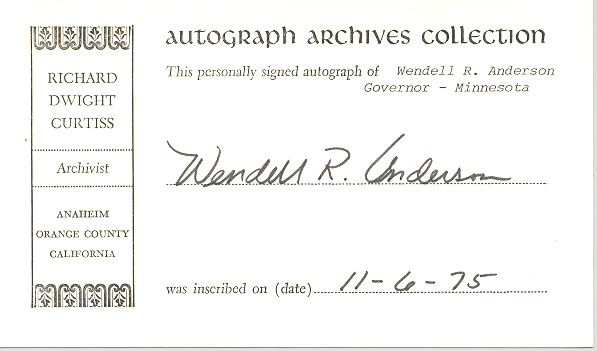 AUTOGRAPH ARCHIVES COLLECTION
This personally signed autograph of Wendell R. Anderson
Governor - Minnesota
Wendell R. Anderson
was inscribed on (date) 11-6-75
RICHARD
DWIGHT
CURTISS
Archivist
ANAHEIM
ORANGE COUNTY
CALIFORNIA